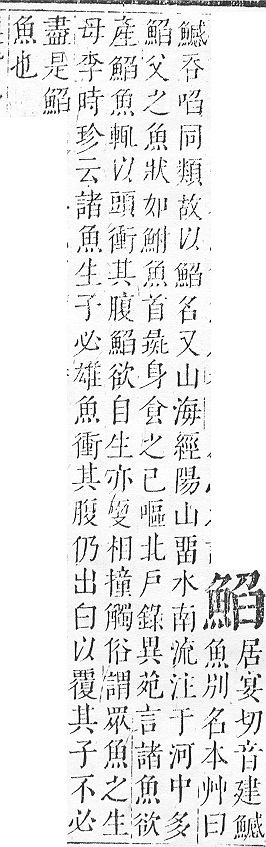 䱤
居宴切音建鱤
魚別名本艸曰
鱤吞啗同類故以䱤名又山海經陽山畱水南流注于河中多
䱤父之魚狀如鮒魚首彘身食之已嘔北戶錄異苑言諸魚欲
產䱤魚輒以頭衝其腹䱤欲自生亦更相撞觸俗謂眾魚之生
母李時珍云諸魚生子必雄魚衝其腹仍出白以覆其子不必
盡是䱤
魚也